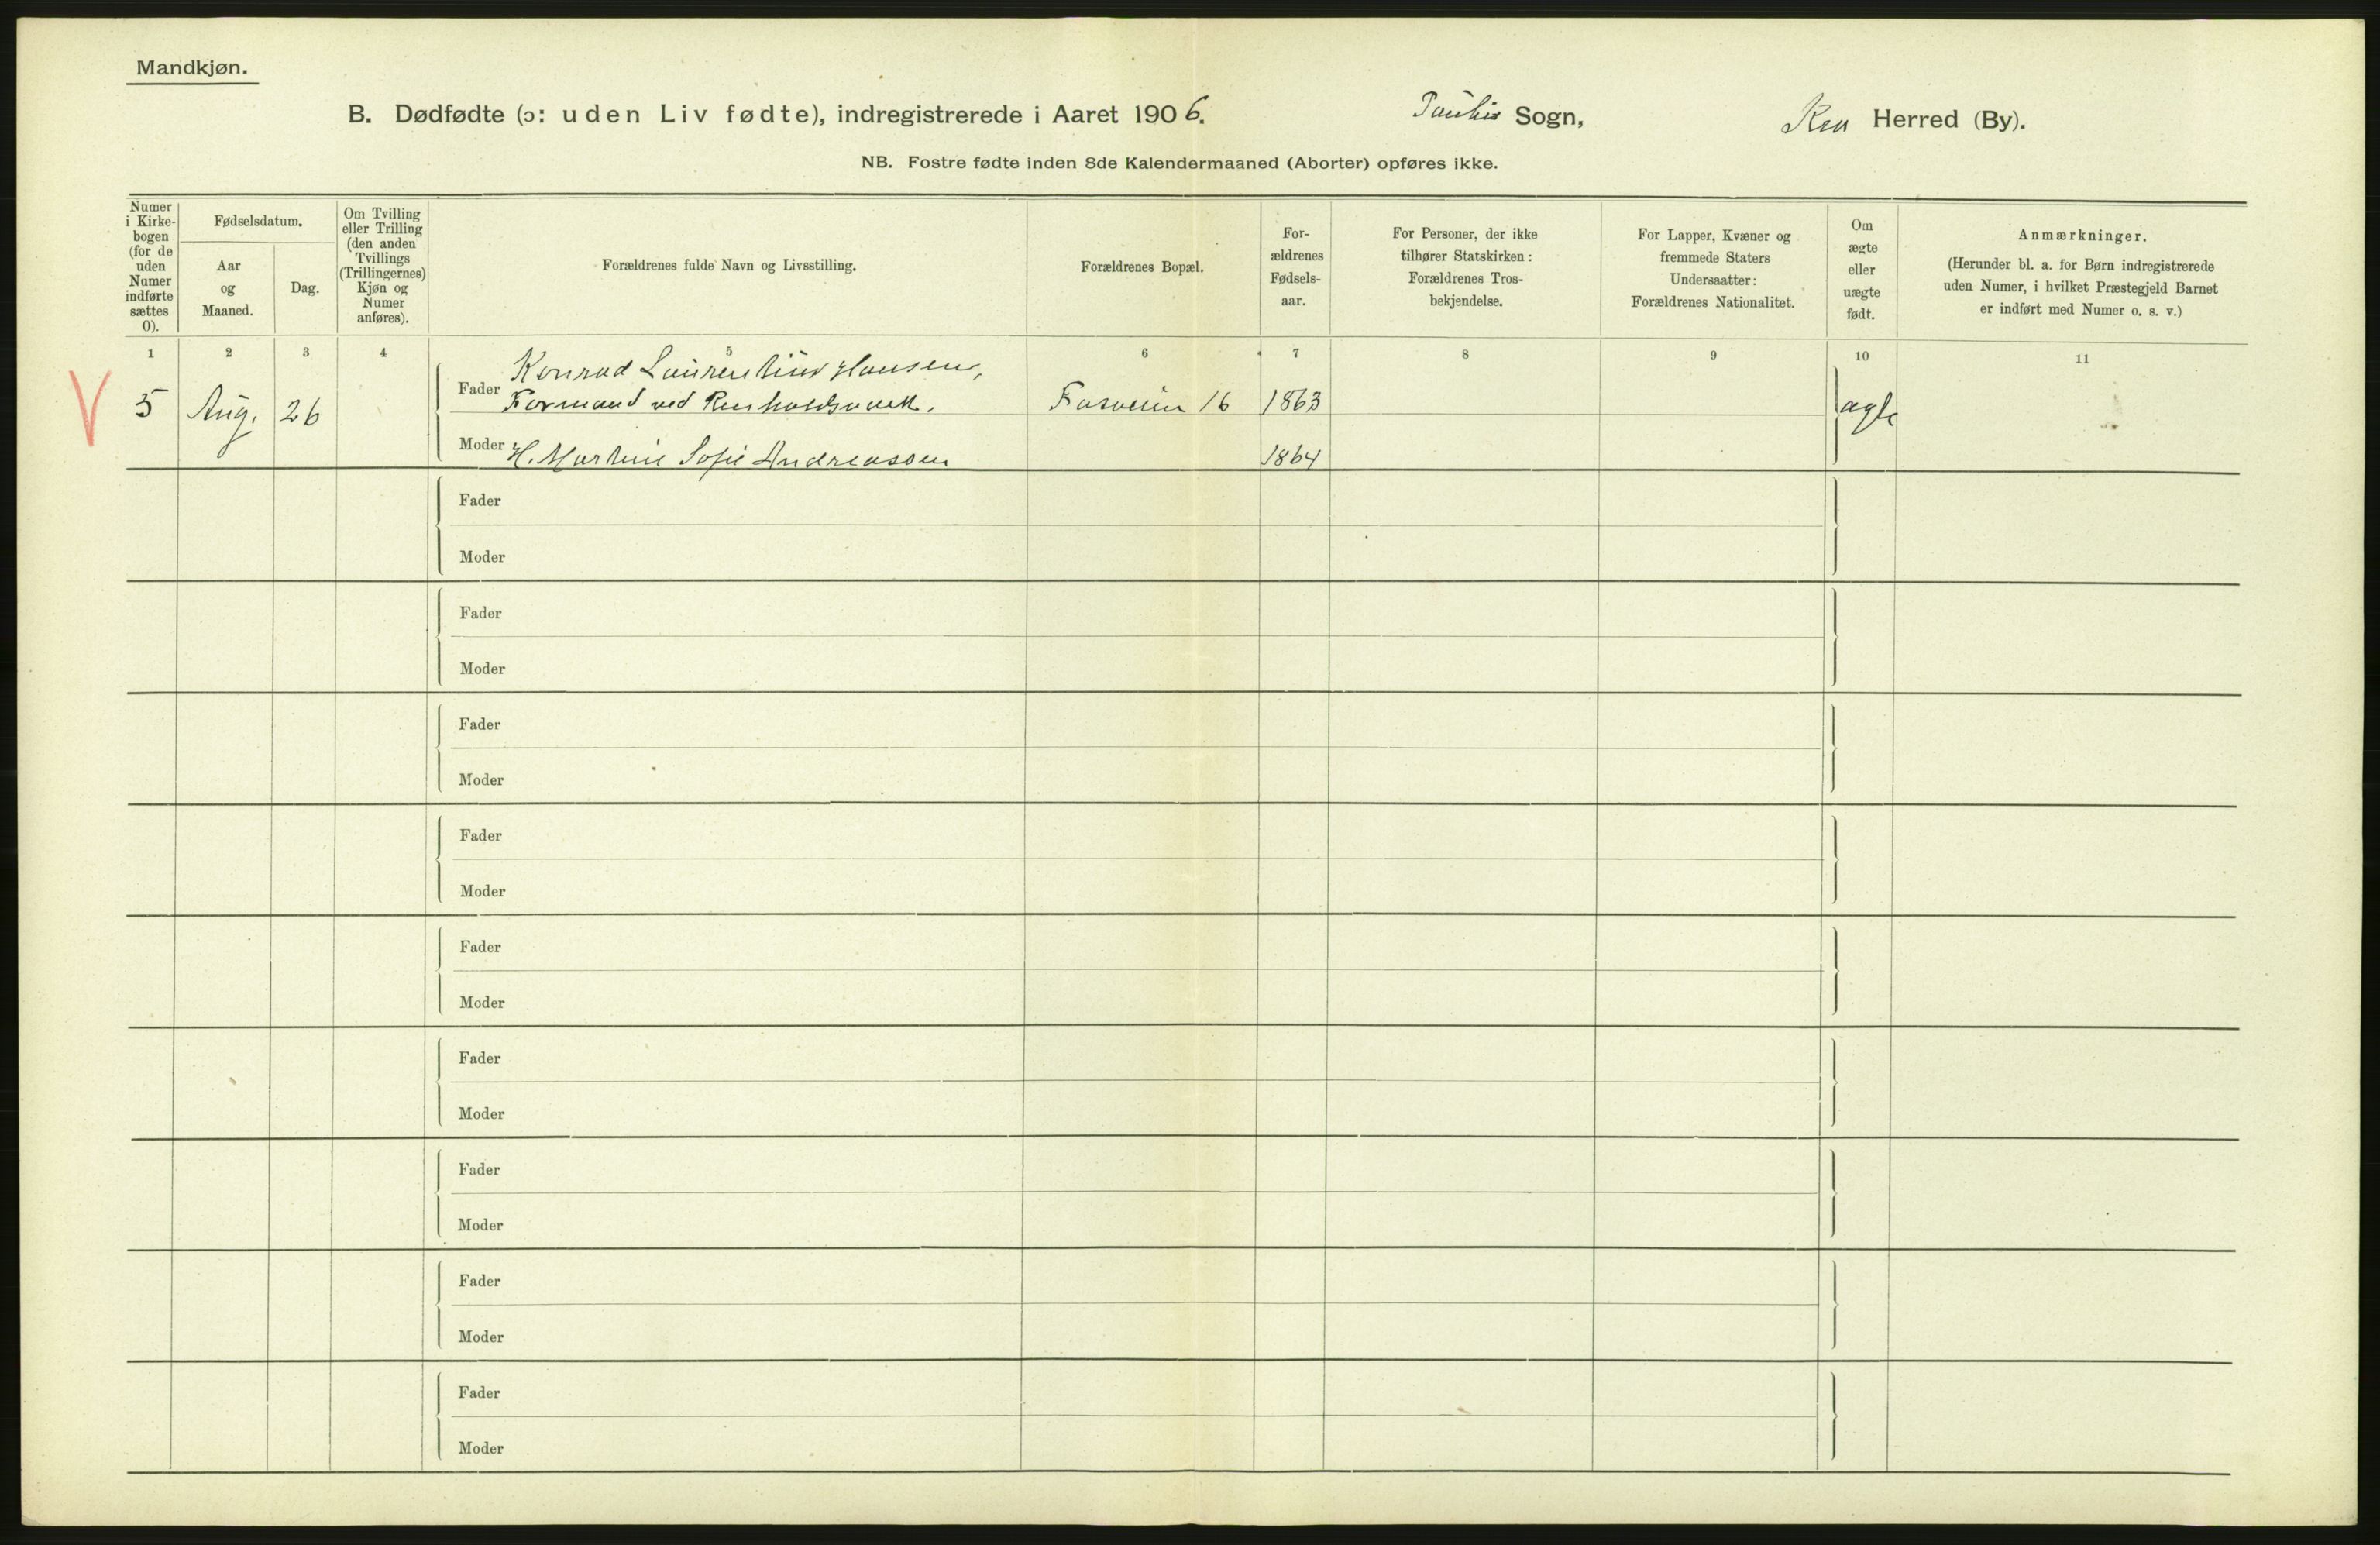 Mandkjøn.
B. Dødfødte (ɔ: uden Liv fødte), indregistrerede i Aaret 1906. Paulus Sogn, Kra Herred (By).
NB. Fostre fødte inden 8de Kalendermaaned (Aborter) opføres ikke.
Numer i Kirkebogen (for de uden Numer indførte sættes 0).
Fødselsdatum.
Aar og Maaned.
Dag.
Om Tvilling eller Trilling (den anden Tvillings (Trillingernes) Kjøn og Numer anføres).
Forældrenes fulde Navn og Livsstilling.
Forældrenes Bopæl.
Forældrenes Fødselsaar.
For Personer, der ikke tilhører Statskirken: Forældrenes Trosbekjendelse.
For Lapper, Kvæner og fremmede Staters Undersaatter: Forældrenes Nationalitet.
Om ægte eller uægte født.
Anmærkninger.
(Herunder bl. a. for Børn indregistrerede uden Numer, i hvilket Præstegjeld Barnet er indført med Numer o. s. v.)
1 2 3 4 5 6 7 8 9 10 11
V 5 Aug. 26
Konrad Laurentius Hansen,
Fader Formand ved Renholdsværk. 16 1863 ægte
Moder H. Martine Sofie Andreassen 1864
Fader
Moder
Fader
Moder
Fader
Moder
Fader
Moder
Fader
Moder
Fader
Moder
Fader
Moder
Fader
Moder
Fader
Moder